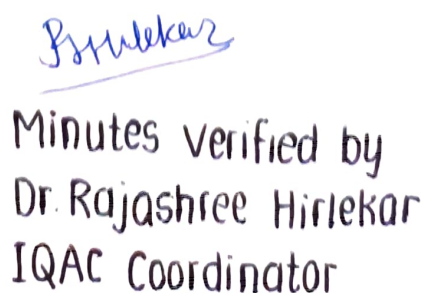 Minutes Verified by
Dr. Rajashree Hirlekar
IQAC Coordinator